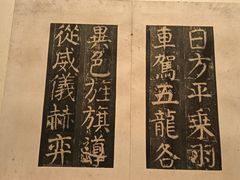 日方平乗羽
車駕五龍各
異色旌旗導
從威儀赫弈